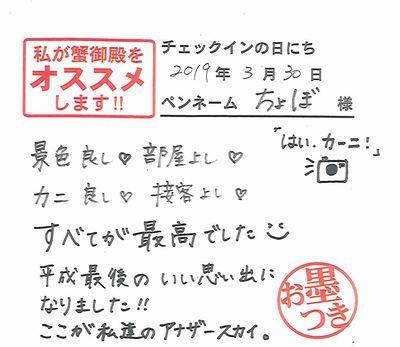 私が蟹御殿を
オススメ
します!!
チェックインの日にち
2019年 3月 30日
ペンネーム ちょぼ 様
景色良し♡ 部屋よし♡
「はい.カーニ!」
カニ 良し♡ 接客よし♡
すべてが最高でした
平成最後のいい思い出に
なりました!!
ここが私達のアナザースカイ。
お墨つき